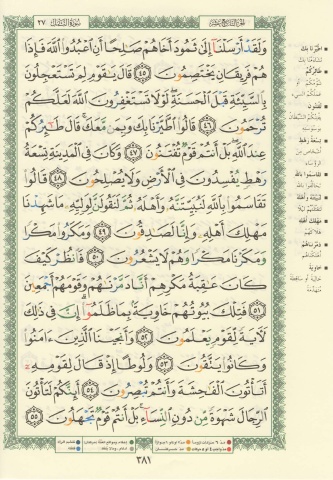 الجزء التاسع عشر
سورة النمل ٢٧
وَلَقَدْ أَرْسَلْنَا إِلَىٰ ثَمُودَ أَخَاهُمْ صَالِحًا أَنِ اعْبُدُوا اللَّهَ فَإِذَا
هُمْ فَرِيقَانِ يَخْتَصِمُونَ ٤٥ قَالَ يَا قَوْمِ لِمَ تَسْتَعْجِلُونَ
بِالسَّيِّئَةِ قَبْلَ الْحَسَنَةِ لَوْلَا تَسْتَغْفِرُونَ اللَّهَ لَعَلَّكُمْ
تُرْحَمُونَ ٤٦ قَالُوا اطَّيَّرْنَا بِكَ وَبِمَن مَّعَكَ قَالَ طَائِرُكُمْ
عِندَ اللَّهِ بَلْ أَنتُمْ قَوْمٌ تُفْتَنُونَ ٤٧ وَكَانَ فِي الْمَدِينَةِ تِسْعَةُ
رَهْطٍ يُفْسِدُونَ فِي الْأَرْضِ وَلَا يُصْلِحُونَ ٤٨ قَالُوا
تَقَاسَمُوا بِاللَّهِ لَنُبَيِّتَنَّهُ وَأَهْلَهُ ثُمَّ لَنَقُولَنَّ لِوَلِيِّهِ مَا شَهِدْنَا
مَهْلِكَ أَهْلِهِ وَإِنَّا لَصَادِقُونَ ٤٩ وَمَكَرُوا مَكْرًا
وَمَكَرْنَا مَكْرًا وَهُمْ لَا يَشْعُرُونَ ٥٠ فَانظُرْ كَيْفَ
كَانَ عَاقِبَةُ مَكْرِهِمْ أَنَّا دَمَّرْنَاهُمْ وَقَوْمَهُمْ أَجْمَعِينَ
٥١ فَتِلْكَ بُيُوتُهُمْ خَاوِيَةً بِمَا ظَلَمُوا إِنَّ فِي ذَٰلِكَ
لَآيَةً لِّقَوْمٍ يَعْلَمُونَ ٥٢ وَأَنجَيْنَا الَّذِينَ آمَنُوا
وَكَانُوا يَتَّقُونَ ٥٣ وَلُوطًا إِذْ قَالَ لِقَوْمِهِ
أَتَأْتُونَ الْفَاحِشَةَ وَأَنتُمْ تُبْصِرُونَ ٥٤ أَئِنَّكُمْ لَتَأْتُونَ
الرِّجَالَ شَهْوَةً مِّن دُونِ النِّسَاءِ بَلْ أَنتُمْ قَوْمٌ تَجْهَلُونَ ٥٥
اطيرنا بك
طائركم
تفتنون
تسعة رهط
تقاسموا بالله
لنبيتنه وأهله
مهلك أهله
دمرناهم
خاوية
٣٨١